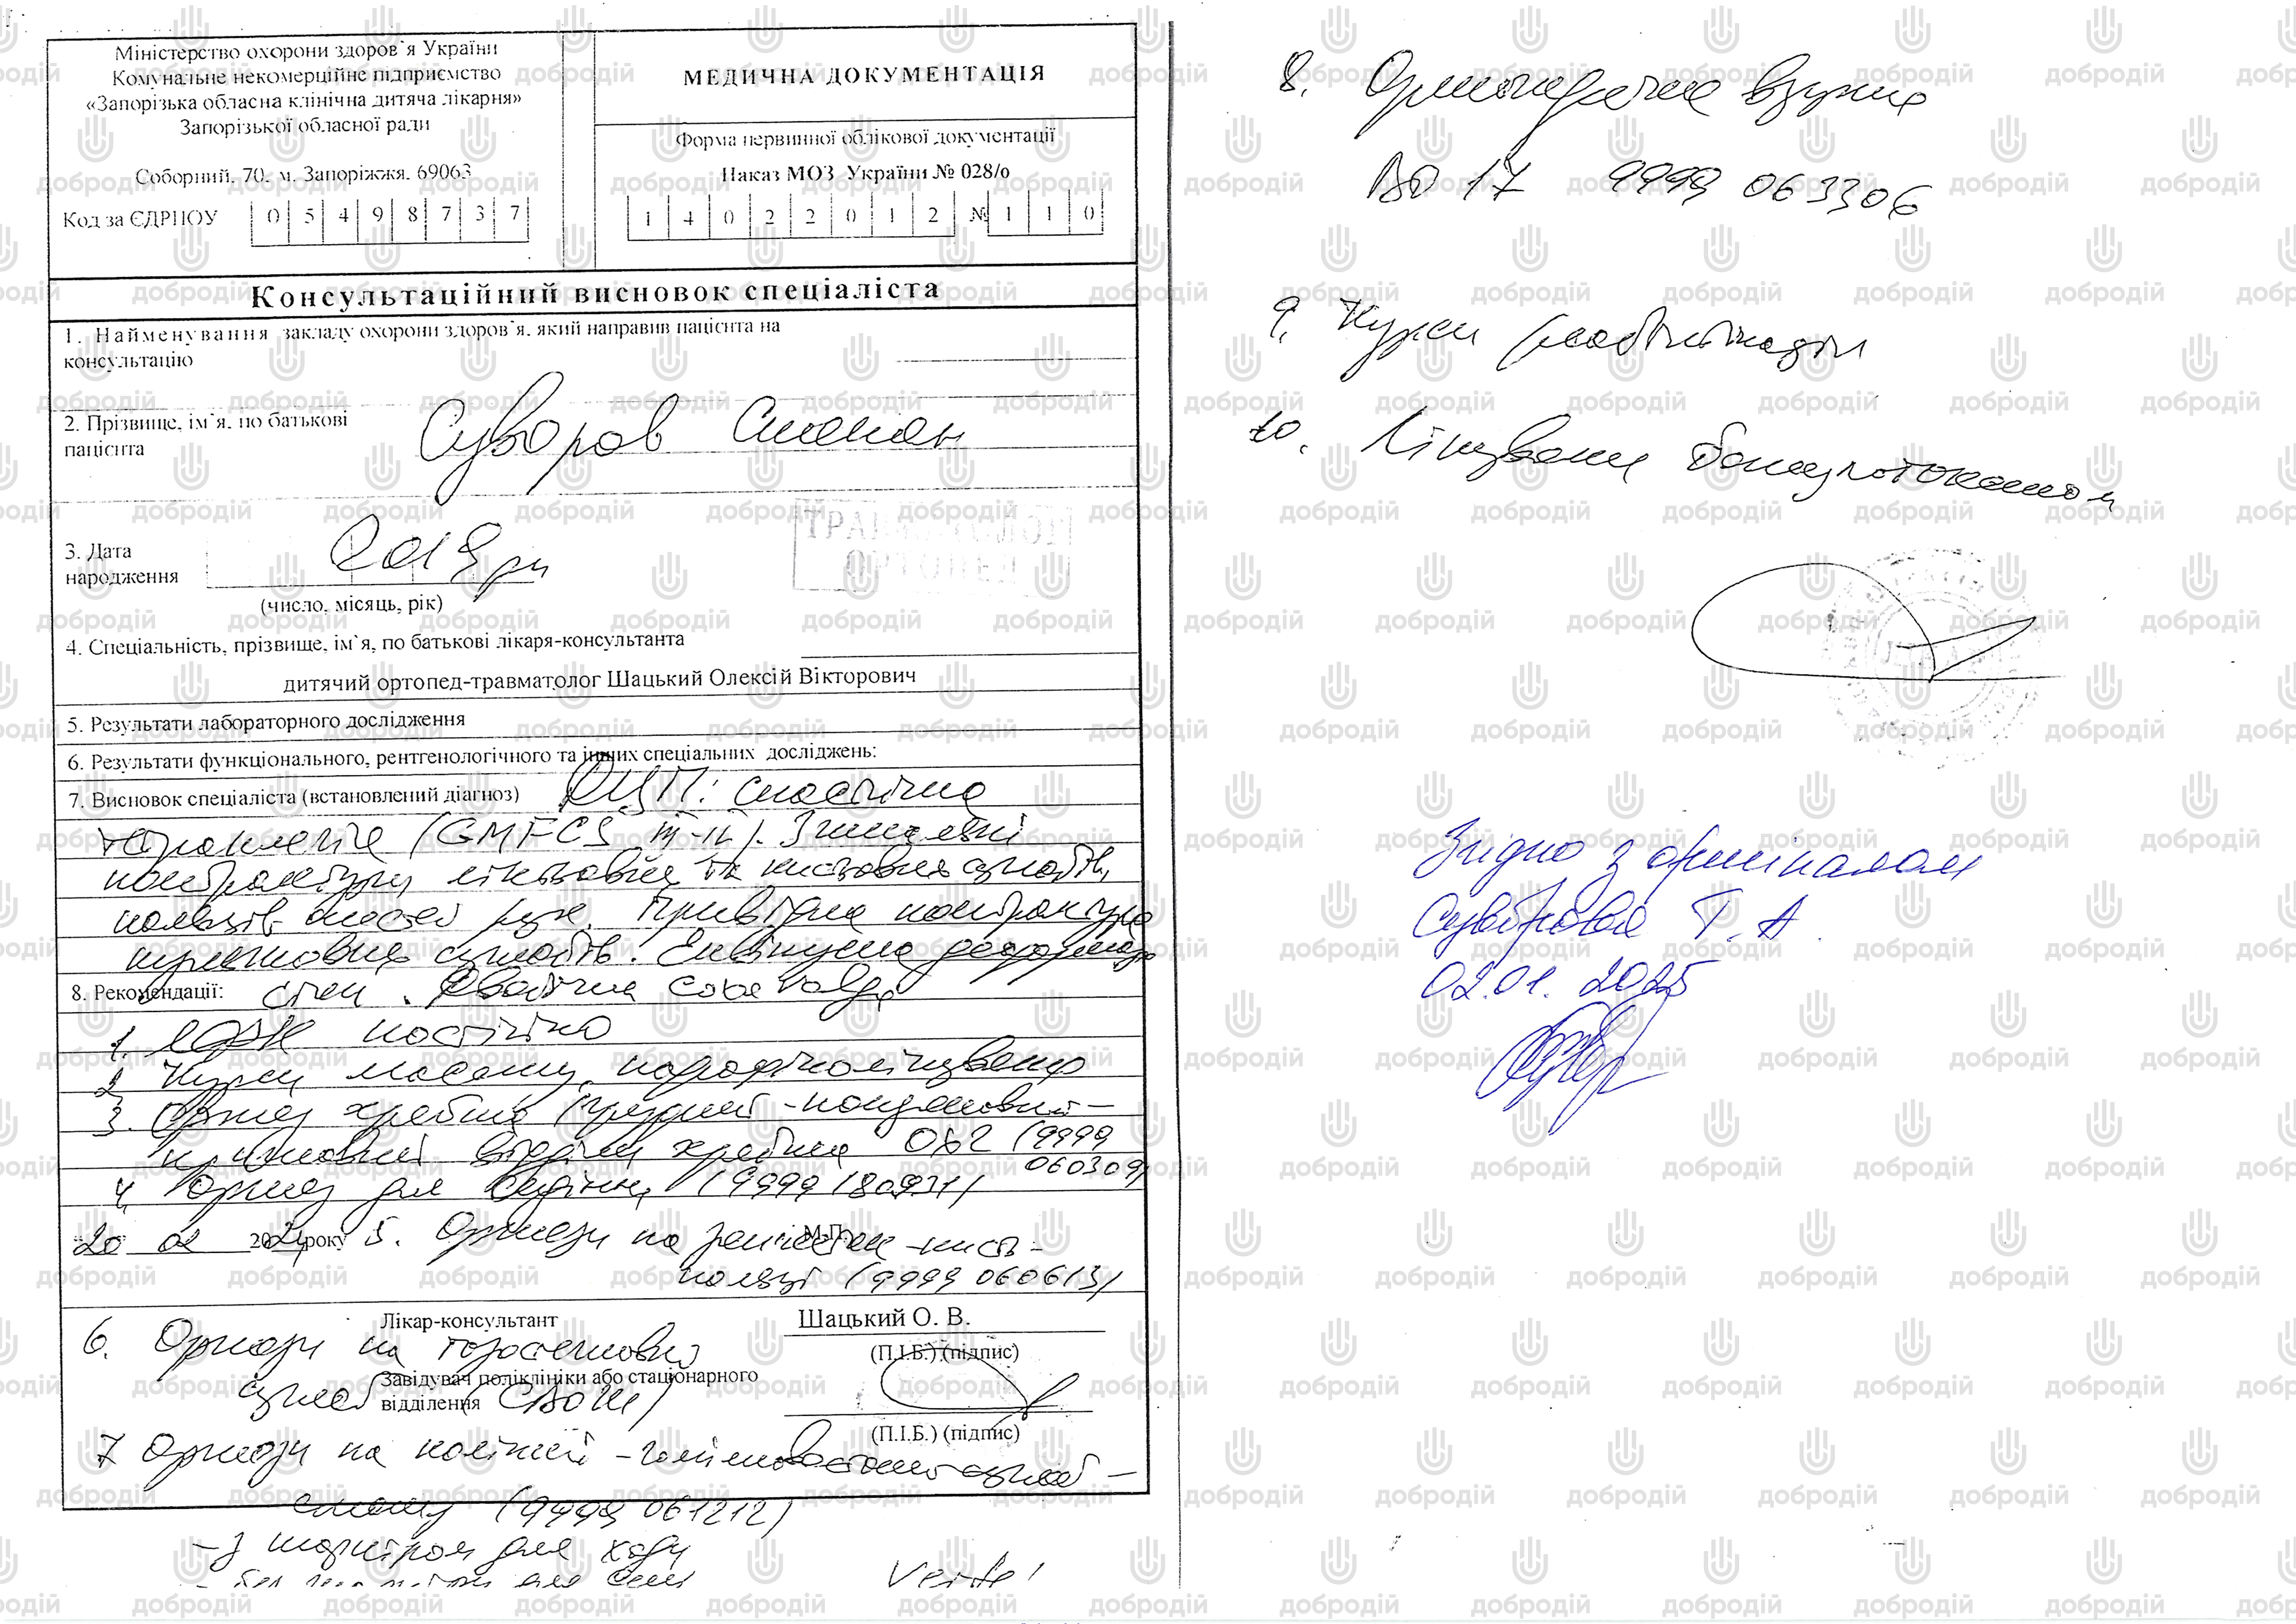 Міністерство охорони здоров`я України
Комунальне некомерційне підприємство
«Запорізька обласна клінічна дитяча лікарня»
Запорізької обласної ради
Соборний, 70, м. Запоріжжя, 69063
Код за ЄДРПОУ 0 5 4 9 8 7 3 7
МЕДИЧНА ДОКУМЕНТАЦІЯ
Форма первинної облікової документації
Наказ МОЗ України № 028/о
1 4 0 2 2 0 1 2 № 1 1 0
Консультаційний висновок спеціаліста
1. Найменування закладу охорони здоров`я, який направив пацієнта на
консультацію
2. Прізвище, ім`я, по батькові Суворов Степан
пацієнта
3. Дата
народження
(число, місяць, рік)
ОРТОПЕД
4. Спеціальність, прізвище, ім`я, по батькові лікаря-консультанта
дитячий ортопед-травматолог Шацький Олексій Вікторович
5. Результати лабораторного дослідження
6. Результати функціонального, рентгенологічного та інших спеціальних досліджень:
7. Висновок спеціаліста (встановлений діагноз) ДЦП: спастична
(GMFCS III-IV). Згинальні
контрактури ліктьових та кистьових суглобів,
пальців кистей рук. Привідна контрактура
кульшових суглобів. Еквінусна деформація
8. Рекомендації: стоп. Двобічна coxa valga
1. ЛФК постійно
2. Курси масажу, парафінолікування
3. Ортез хребта (грудний -поперековий-
крижовий відділи хребта 062 (9999
060309)
4. Ортез для сидіння (9999 180931)
20 02 2024 року М.П.
5. Ортези на зап'ясток -кисть-
пальці (9999 060613)
Лікар-консультант Шацький О. В.
(П.І.Б.) (підпис)
6. Ортези на тазостегновий
суглоб (СВОШ)
Завідувач поліклініки або стаціонарного
відділення
(П.І.Б.) (підпис)
7 Ортези на колінний -гомілковостопний суглоб -
стопу (9999 061212)
- з шарніром для ходи
Verte!
8. Ортопедичне взуття
ВО 17 9999 063306
9. Курси реабілітації
10. Лікування ботулотоксином
Згідно з оригіналом
Суворова Т. А.
02.01.2025
добродій